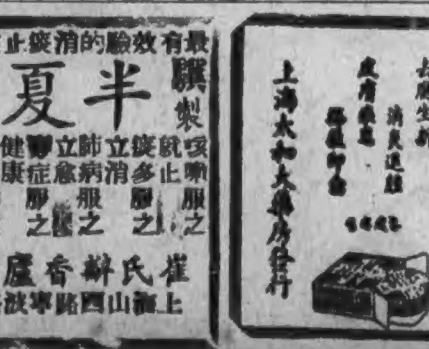 最有效驗的消痰止
製
半夏
咳嗽服之
就止
痰多服之
立消
肺病服之
立愈
症服之
健康
崔氏瓣香廬
上海山西路寧波
生肌
消炎退腫
皮膚
上海太和大藥房發行